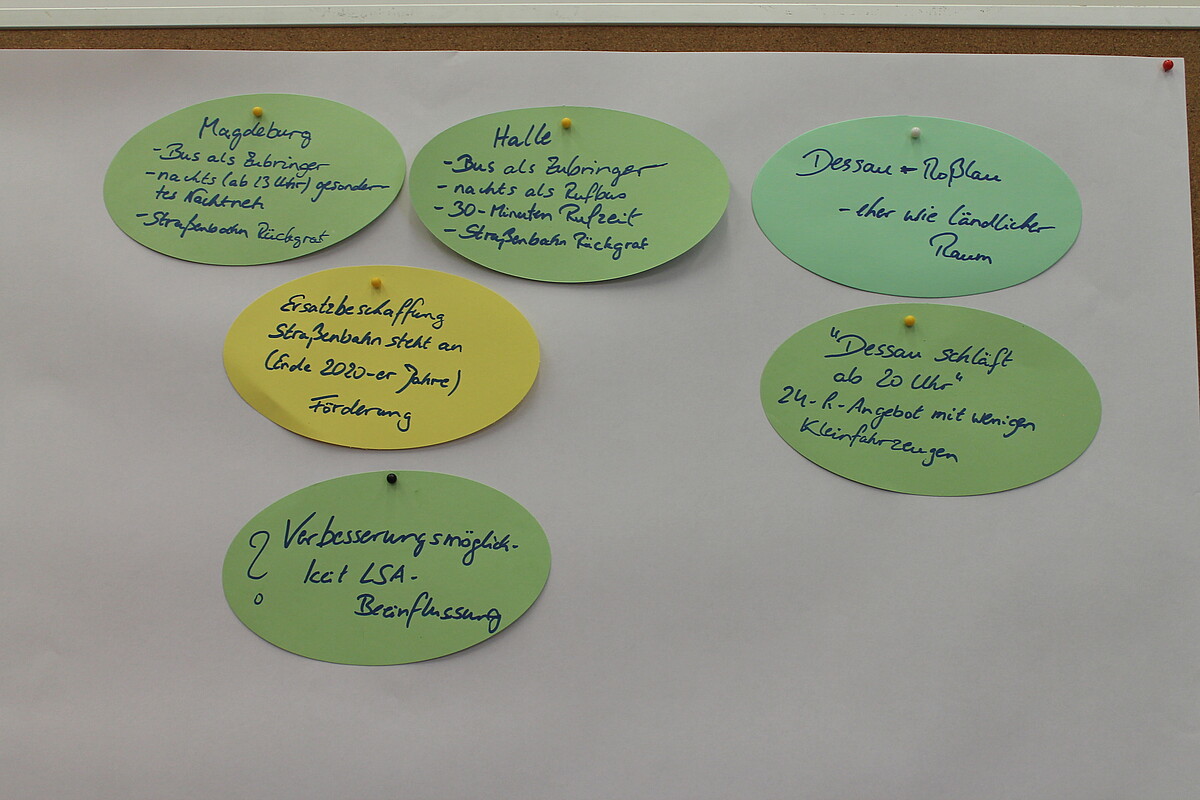 Magdeburg
- Bus als Zubringer
- nachts (ab 23 Uhr) gesonder-
tes Nachtnetz
- Straßenbahn Rückgrat
Halle
- Bus als Zubringer
- nachts als Rufbus
- 30-Minuten Rufzeit
- Straßenbahn Rückgrat
Dessau-Roßlau
- eher wie ländlicher
Raum
Ersatzbeschaffung
Straßenbahn steht an
(Ende 2020-er Jahre)
Förderung
"Dessau schläft
ab 20 Uhr"
24-h-Angebot mit wenigen
Kleinfahrzeugen
? Verbesserungsmöglich-
keit LSA-
Beeinflussung